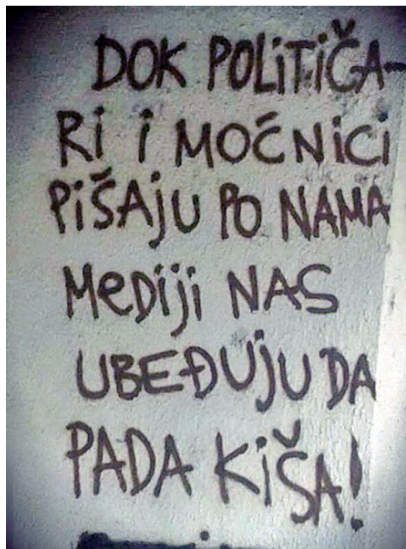 DOK POLiTiČA-
Ri i MOĆNiCi
PiŠAjU PO NAMA
MeDiji NAS
UBEĐUjU DA
PADA KiŠA!